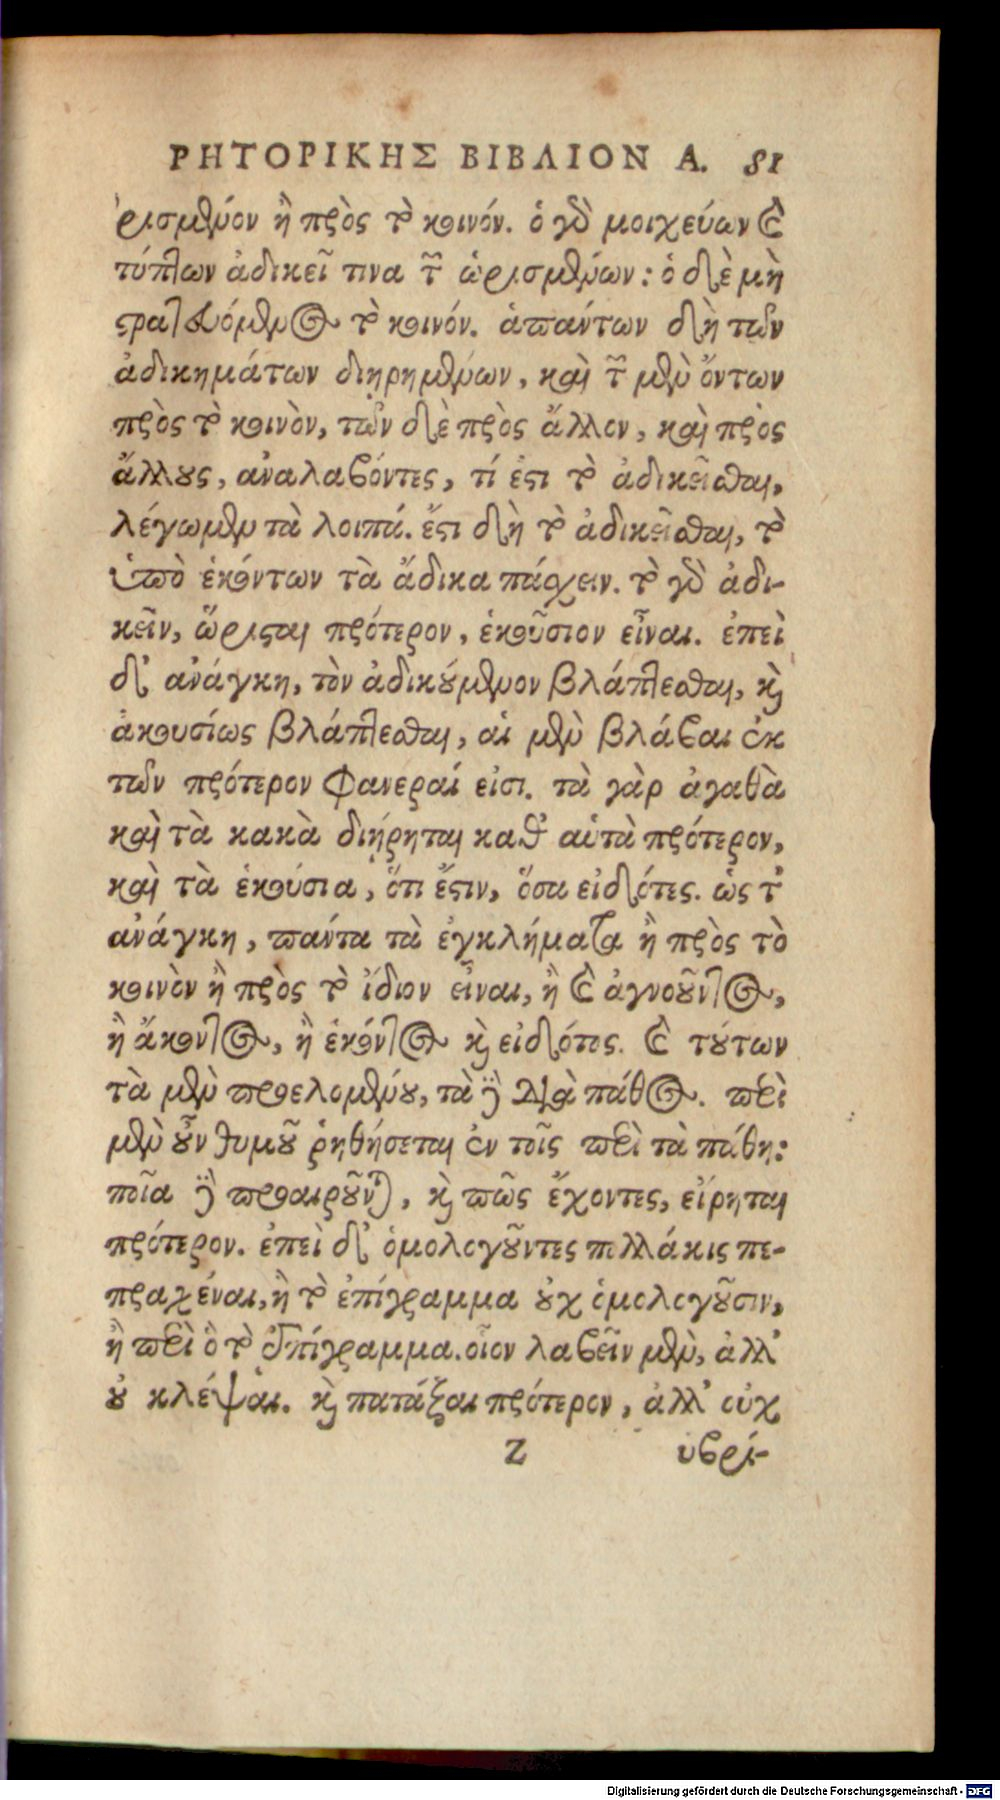 ΡΗΤΟΡΙΚΗΣ ΒΙΒΛΙΟΝ Α. 81
ρισμένον ἢ πρὸς τὸ κοινόν. ὁ γὰρ μοιχεύων καὶ
τύπτων ἀδικεῖ τινα τῶν ὡρισμένων: ὁ δὲ μὴ
στρατευόμενος τὸ κοινόν. ἁπάντων δὴ τῶν
ἀδικημάτων διῃρημένων, καὶ τῶν μὲν ὄντων
πρὸς τὸ κοινὸν, τῶν δὲ πρὸς ἄλλον, καὶ πρὸς
ἄλλους, ἀναλαβόντες, τί ἐστι τὸ ἀδικεῖσθαι,
λέγωμεν τὰ λοιπά. ἔστι δὴ τὸ ἀδικεῖσθαι, τὸ
ὑπὸ ἑκόντων τὰ ἄδικα πάσχειν. τὸ γὰρ ἀδι-
κεῖν, ὥρισται πρότερον, ἑκούσιον εἶναι. ἐπεὶ
δ' ἀνάγκη, τὸν ἀδικούμενον βλάπτεσθαι, καὶ
ἀκουσίως βλάπτεσθαι, αἱ μὲν βλάβαι ἐκ
τῶν πρότερον φανεραί εἰσι. τὰ γὰρ ἀγαθὰ
καὶ τὰ κακὰ διῄρηται καθ' αὑτὰ πρότερον,
καὶ τὰ ἑκούσια, ὅτι ἔστιν, ὅσα εἰδότες. ὡς τ'
ἀνάγκη, πάντα τὰ ἐγκλήματα ἢ πρὸς τὸ
κοινὸν ἢ πρὸς τὸ ἴδιον εἶναι, ἢ καὶ ἀγνοοῦντος,
ἢ ἄκοντος, ἢ ἑκόντος καὶ εἰδότος. καὶ τούτων
τὰ μὲν προελομένου, τὰ δὲ διὰ πάθος. περὶ
μὲν οὖν θυμοῦ ῥηθήσεται ἐν τοῖς περὶ τὰ πάθη:
ποῖα δὲ προαιροῦνται, καὶ πῶς ἔχοντες, εἴρηται
πρότερον. ἐπεὶ δ' ὁμολογοῦντες πολλάκις πε-
πραχέναι, ἢ τὸ ἐπίγραμμα οὐχ ὁμολογοῦσιν,
ἢ περὶ ὃ τὸ ἐπίγραμμα. οἷον λαβεῖν μὲν, ἀλλ'
οὐ κλέψαι. καὶ πατάξαι πρότερον, ἀλλ' οὐχ
Z ὑβρί-
Digitalisierung gefördert durch die Deutsche Forschungsgemeinschaft - DFG